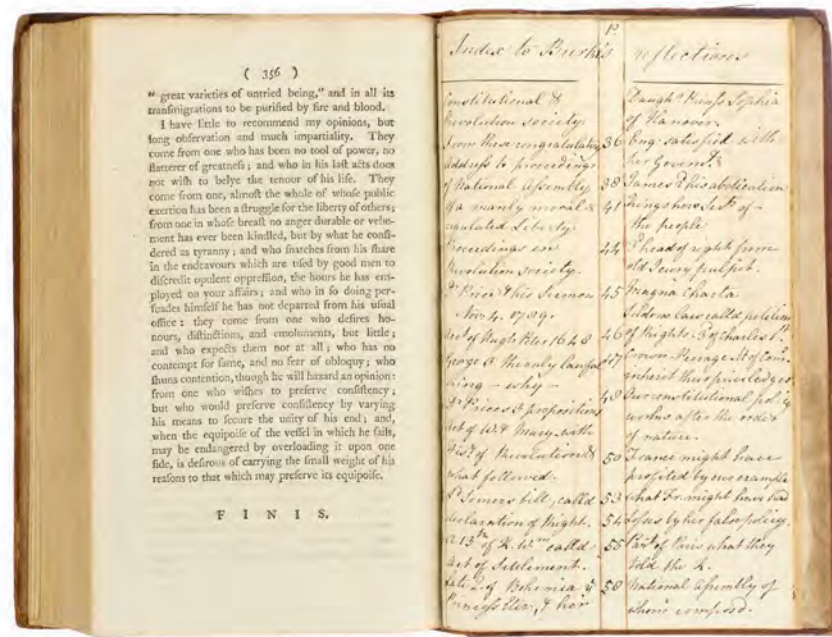 ( 356 )
“ great varieties of untried being,” and in all its
tranſmigrations to be purified by fire and blood.
I have little to recommend my opinions, but
long obſervation and much impartiality. They
come from one who has been no tool of power, no
flatterer of greatneſs; and who in his laſt acts does
not wiſh to belye the tenour of his life. They
come from one, almoſt the whole of whoſe public
exertion has been a ſtruggle for the liberty of others;
from one in whoſe breaſt no anger durable or vehe-
ment has ever been kindled, but by what he conſi-
dered as tyranny; and who ſnatches from his ſhare
in the endeavours which are uſed by good men to
diſcredit opulent oppreſſion, the hours he has em-
ployed on your affairs; and who in ſo doing per-
ſuades himſelf he has not departed from his uſual
office: they come from one who deſires ho-
nours, diſtinctions, and emoluments, but little;
and who expects them not at all; who has no
contempt for fame, and no fear of obloquy; who
ſhuns contention, though he will hazard an opinion:
from one who wiſhes to preſerve conſiſtency;
but who would preſerve conſiſtency by varying
his means to ſecure the unity of his end; and,
when the equipoiſe of the veſſel in which he ſails,
may be endangered by overloading it upon one
ſide, is deſirous of carrying the ſmall weight of his
reaſons to that which may preſerve its equipoiſe.
F I N I S.
Index to Burke's reflections
Constitutional &
Revolution society
From these congratulatory
address to proceedings
of National Assembly
Of a manly moral &
regulated Liberty
Proceedings in
Revolution society.
Dr Price & his Sermon
Nov 4. 1789.
Act of Hugh Peters 1648
George 3 the only lawful
King - why -
Dr Prices 3 propositions
Act of W. & Mary with
Hisy of Revolution &
what followed.
Ld Somers bill, called
declaration of Right.
A 13th of K. Wm called
Act of Settlement.
of Bohemia &
Princess Eliz. & her
Daughr Princess Sophia
of Hanover.
36 Eng. satisfied with
her Governt.
38 James 2 his abdication
41 Kings how Servts of -
the people
44
old Jewry pulpit.
45 Magna Charta
Seldom law called petition
46 of Rights. 3 of Charles 1st
47 Crown - Peerage
inherit their priviledges
48 Our constitutional policy
works after the order
of nature.
50 France might have
profited by our example
53 What Fr. might have had
54 Losses by her false policy.
55 Parlt of Paris what they
told the K.
58 National Assembly of
whom composed.